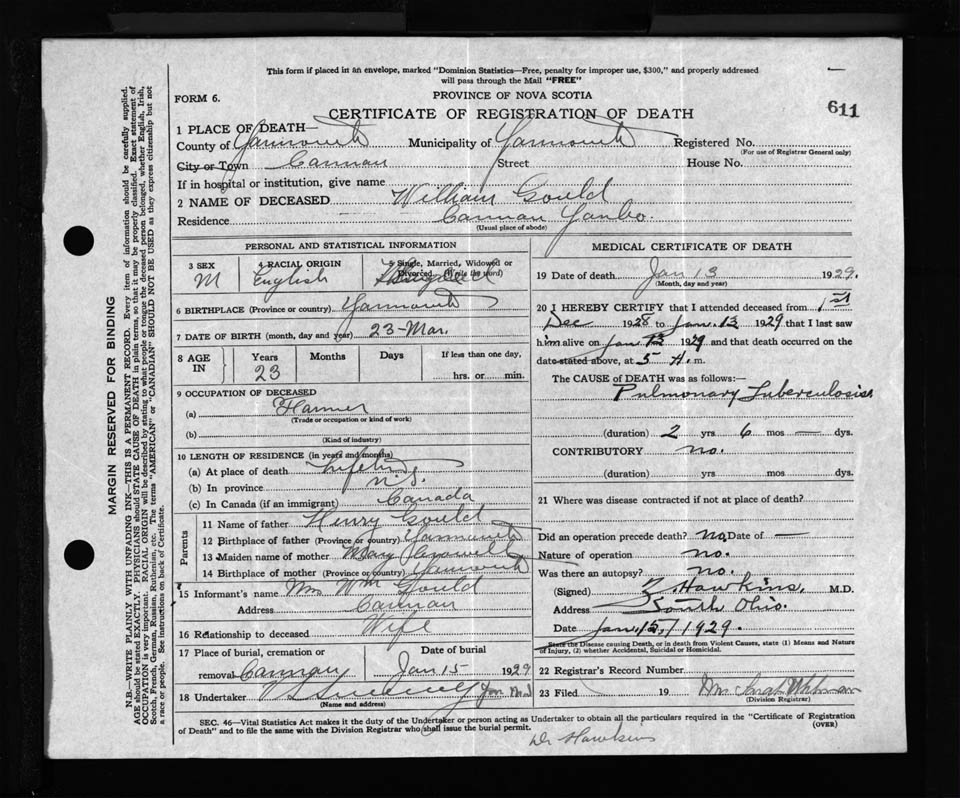 This form if placed in an envelope, marked "Dominion Statistics—Free, penalty for improper use, $300," and properly addressed
will pass through the Mail "FREE"
FORM 6.
PROVINCE OF NOVA SCOTIA
611
CERTIFICATE OF REGISTRATION OF DEATH
1 PLACE OF DEATH—
County of Yarmouth Municipality of Yarmouth Registered No.
(For use of Registrar General only)
City or Town Carman Street House No.
If in hospital or institution, give name
2 NAME OF DECEASED William Gould
Residence Carman Yar. Co.
(Usual place of abode)
PERSONAL AND STATISTICAL INFORMATION
3 SEX 4 RACIAL ORIGIN 5 Single, Married, Widowed or
Divorced (Write the word)
M English
6 BIRTHPLACE (Province or country) Yarmouth
7 DATE OF BIRTH (month, day and year) 23-Mar.
8 AGE IN Years Months Days If less than one day,
23 hrs. or min.
9 OCCUPATION OF DECEASED
(a) Farmer
(Trade or occupation or kind of work)
(b)
(Kind of industry)
10 LENGTH OF RESIDENCE (in years and months)
(a) At place of death Lifetime
(b) In province N S.
(c) In Canada (if an immigrant) Canada
Parents
11 Name of father Henry Gould
12 Birthplace of father (Province or country) Yarmouth
13 Maiden name of mother Mary Crowell
14 Birthplace of mother (Province or country) Yarmouth
15 Informant's name Mrs Wm Gould
Address Carman
16 Relationship to deceased Wife
17 Place of burial, cremation or Date of burial
removal Carman Jan 15 1929
18 Undertaker
(Name and address)
MEDICAL CERTIFICATE OF DEATH
19 Date of death Jan 13 1929.
(Month, day and year)
20 I HEREBY CERTIFY that I attended deceased from 1st
Dec 1928 to Jan. 13 1929 that I last saw
him alive on Jan 12 1929 and that death occurred on the
date stated above, at 5 A. m.
The CAUSE of DEATH was as follows:—
Pulmonary Tuberculosis
(duration) 2 yrs 6 mos — dys.
CONTRIBUTORY no.
(duration) yrs. mos. dys.
21 Where was disease contracted if not at place of death?
Did an operation precede death? no Date of —
Nature of operation no.
Was there an autopsy? no.
(Signed) Z. Hawkins, M.D.
Address South Ohio.
Date Jan. 15, 1929.
State the Disease causing Death, or in death from Violent Causes, state (1) Means and Nature
of Injury, (2) whether Accidental, Suicidal or Homicidal.
22 Registrar's Record Number
23 Filed 19 Mrs Sarah
(Division Registrar)
SEC. 46—Vital Statistics Act makes it the duty of the Undertaker or person acting as Undertaker to obtain all the particulars required in the "Certificate of Registration
of Death" and to file the same with the Division Registrar who shall issue the burial permit. (OVER)
Dr Hawkins
MARGIN RESERVED FOR BINDING
N.B.—WRITE PLAINLY WITH UNFADING INK—THIS IS A PERMANENT RECORD. Every item of information should be carefully supplied.
AGE should be stated EXACTLY. PHYSICIANS should STATE CAUSE OF DEATH in plain terms, so that it may be properly classified. Exact statement of
OCCUPATION is very important. RACIAL ORIGIN will be described by stating to what people or tongue the deceased person belonged, whether English, Irish,
Scotch, French, German, Russian, Ruthenian, etc. The terms "AMERICAN" or "CANADIAN" SHOULD NOT BE USED as they express citizenship but not
a race or people. See instructions on back of Certificate.